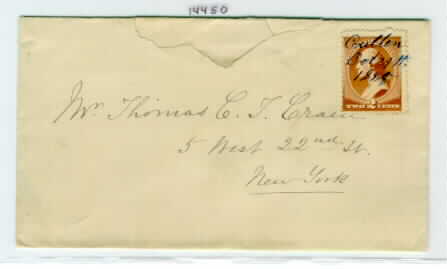 14450
Cullen
Oct 29th
TWO CENTS
Mr. Thomas C. T. Crain
5 West 22nd St.
New York